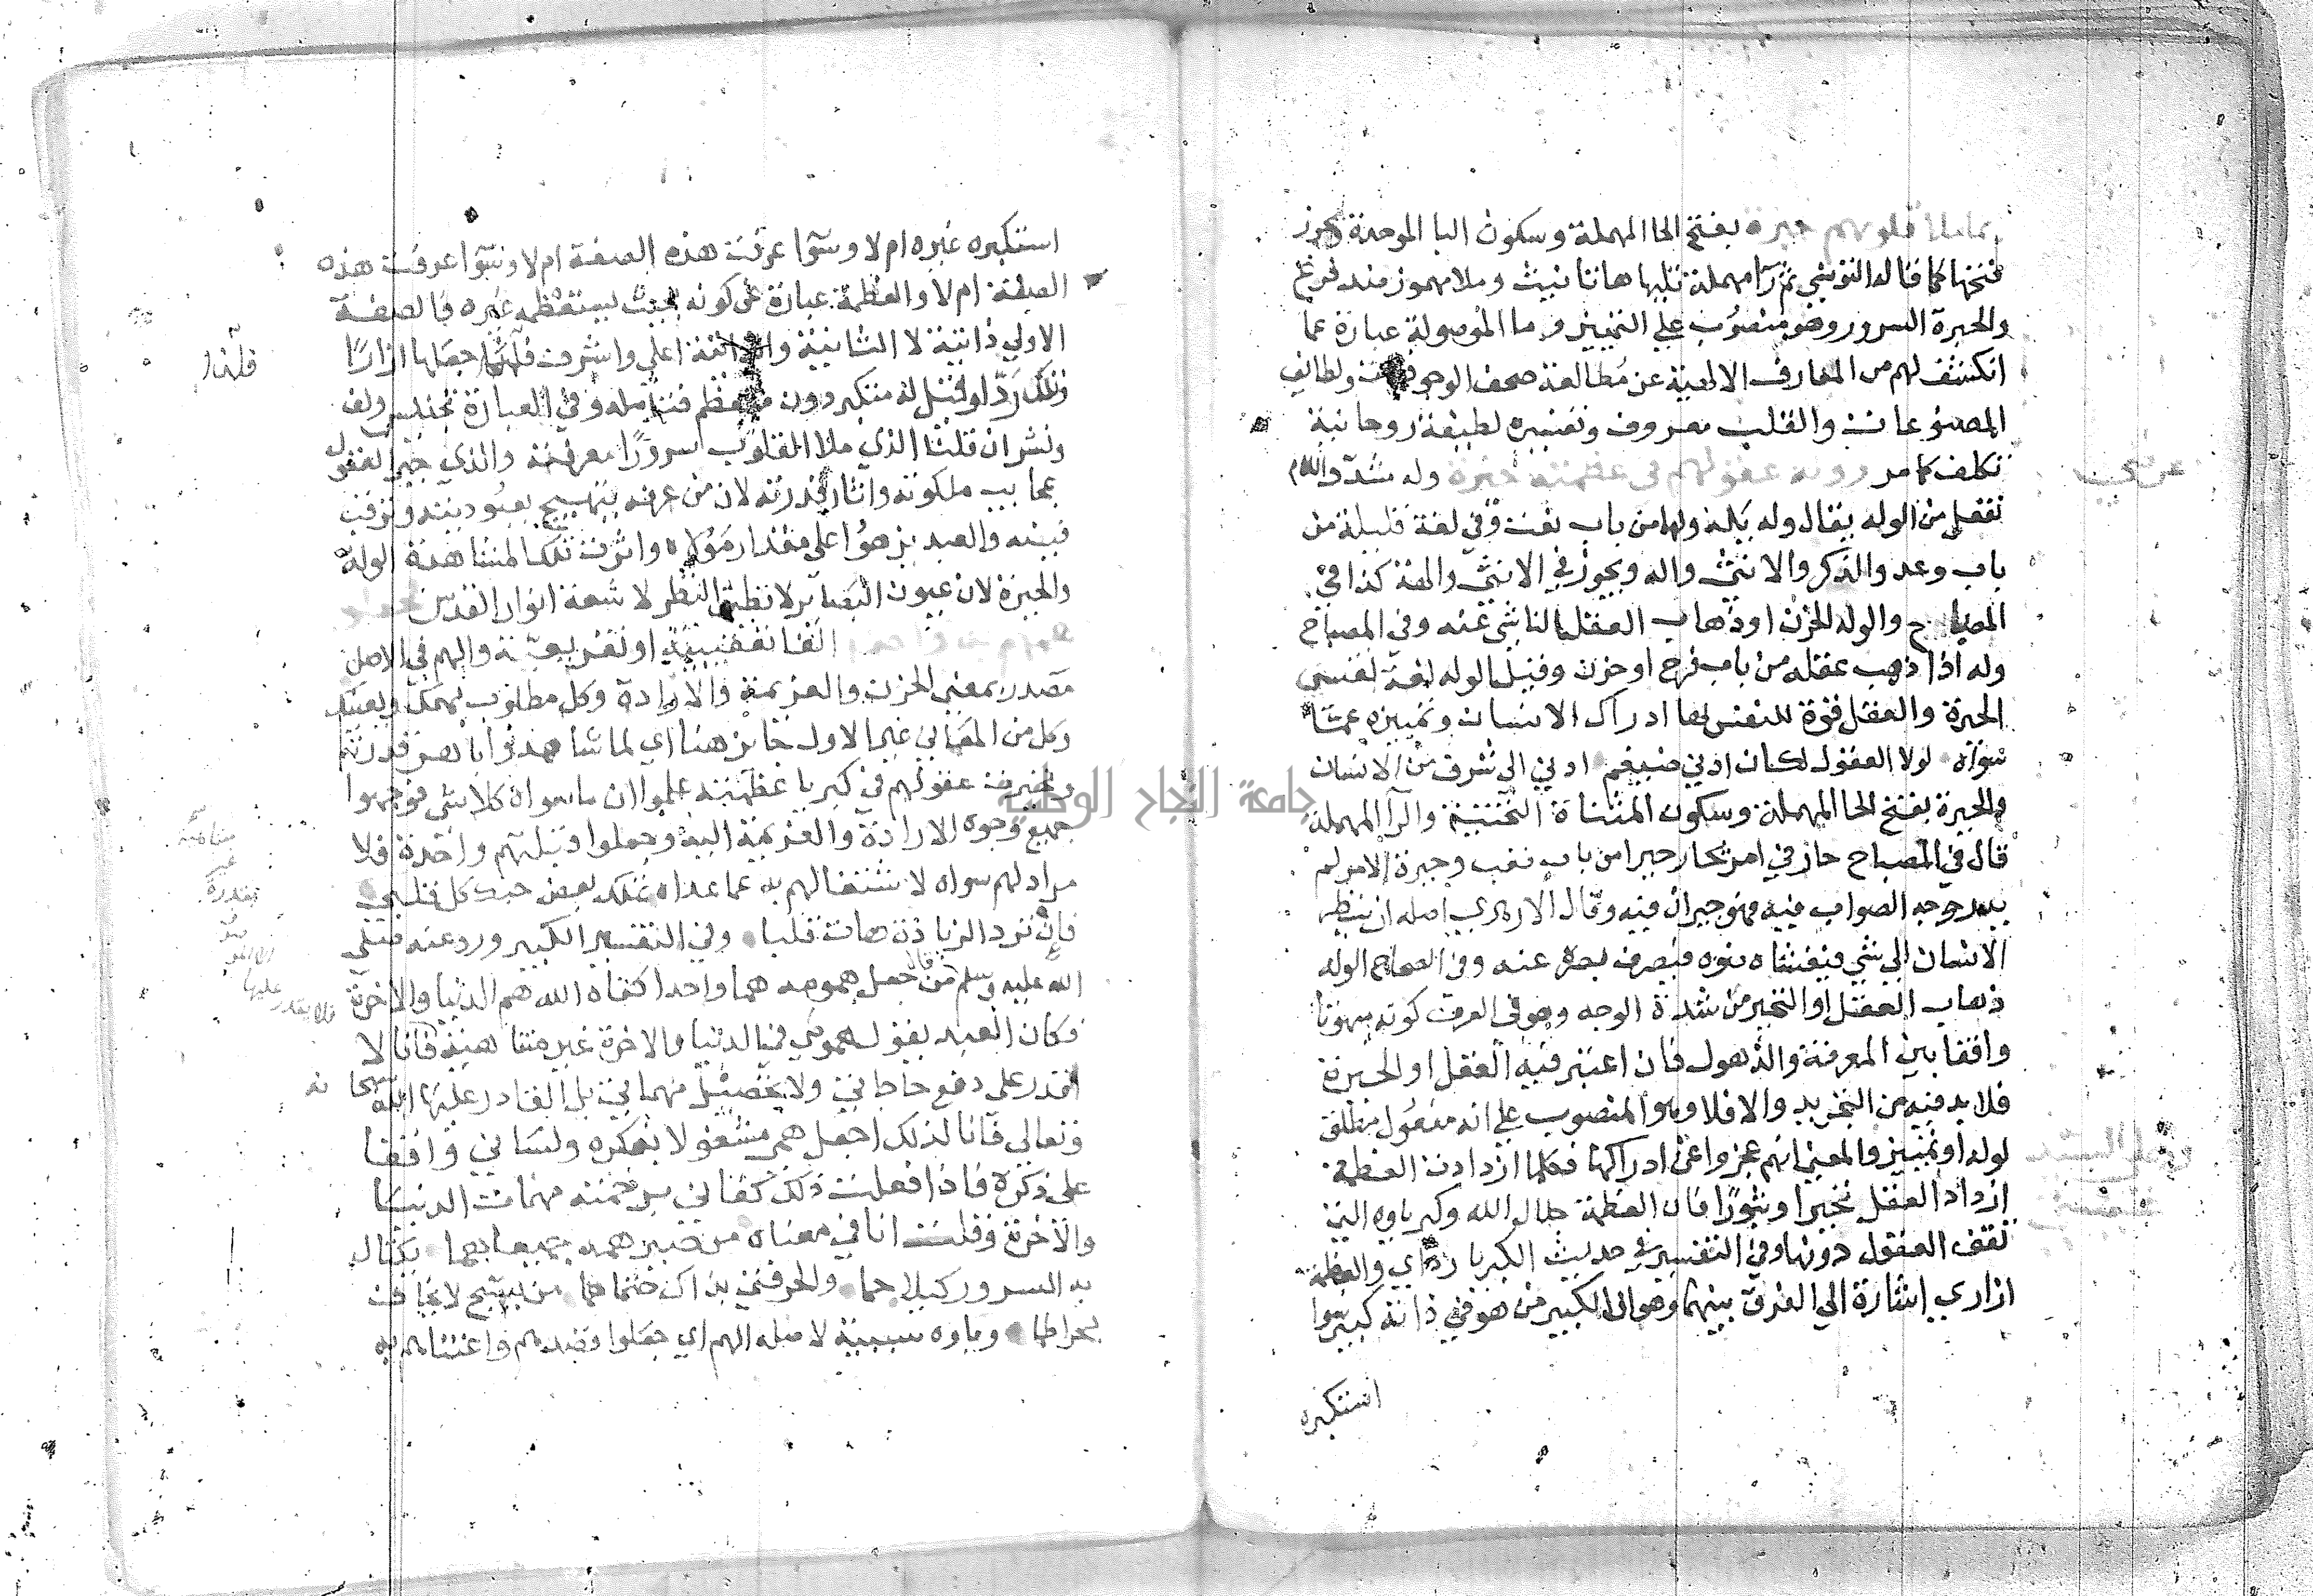 بما ملأ قلوبهم حبرة بفتح الحا المهملة وسكون البا الموحدة ويجوز
فتحها كما قاله التونسي ثم را مهملة تليها هاتانيث وملا مهموز منه فرغ
والحبرة السرور وهو منصوب على التمييز وما الموصولة عبارة عما
انكشف لهم من المعارف الالهية عن مطالعة صحف الوجو ولطائف
المصنوعات والقلب معروف وتفسيره لطيفة روحانية
تكلف كما مر ووله عقولهم في عظمته حيرة وله مشدد اللام
تفعل من الوله يقال وله يله ولها من باب تعب وفي لغة قليلة من
باب وعد والذكر والانثى واله ويجوز في الانثى والهة كذا في
المصباح والوله الحزن او ذهاب العقل الناشي عنه وفي المصباح
وله اذا ذهب عقله من باب فرح او حزن وقيل الوله لغة لفسي
الحيرة والعقل قوة للنفس بها ادراك الانسان وتمييزه عما
سواه لولا العقول لكان ادنى ضيغم ادنى الى شرف من الانسان
والحيرة بفتح الحا المهملة وسكون المثناة التحتية والرا المهملة
قال في المصباح حار في امر يحار حيرا من باب تعب وحيرة الامر لم
يدر وجه الصواب فيه فهو حيران فيه وقال الازهري اصله ان ينظر
الانسان الى شي فيغشاه نوره فيصرف بصره عنه وفي الصحاح الوله
ذهاب العقل او التحير من شدة الوجد وهو في العرف كونه مبهوتا
واقفا بين المعرفة والذهول فان اعتبر فيه العقل او الحيرة
فلا بد فيه من التجريد والا فلا وهو المنصوب على انه مفعول مطلق
لوله او تمييز والمعنى انهم عجزوا عن ادراكها فكلما ازدادت العظمة
ازداد العقل تحيرا وثبورا فان العظمة جلال الله وكبرياوه التي
تقف العقول دونها وفي التفسير في حديث الكبريا رداي والعظمة
ازاري اشارة الى الفرق بينهما وهو ان الكبير من هو في ذاته كبير سوا
استكبره
استكبره غيره ام لا وسوا عرفت هذه الصفة ام لا وسوا عرفت هذه
الصفة ام لا والعظمة عبارة عن كونه بحيث يستعظمه غيره فالصفة
الاولى ذاتية لا الثانية والذاتية اعلى واشرف فلهذا جعلها ازارا
وتلك ردا وقيل له متكبر دون متعظم فتامله وفي العبارة تجنيس ولف
ونشر ان قلت الذي ملا القلوب سرورا معرفته والذي حير العقول
عجايب ملكوته واثار قدرته لان من عرفه يبتهج بعبوديته وترقت
فيه والعبد يزهوا على مقدار مولاه واثرت تلك المشاهدة الوله
والحيرة لان عيون البصاير لا تطيق النظر لا شعة انوار القدس فجعلوا
همهم به واحدا الفا تعقيبية او تفريعية والهم في الاصل
مصدر بمعنى الحزن والعزيمة والارادة وكل مطلوب يهمك ويعنيك
وكل من المعاني غير الاول جائز هنا اي لما شاهدوا باهر قدرته
وتحيرت عقولهم في كبريا عظمته علموا ان ما سواه كلا شي فوجهوا
جميع وجوه الارادة والعزيمة اليه وجعلوا قبلتهم واحدة فلا
مراد لهم سواه لاشتغالهم به عما عداه تملك بعض حبك كل قلبي
فان ترد الزيادة هات قلبا وفي التفسير الكبير ورد عنه صلى
الله عليه وسلم قال من جعل همومه هما واحدا كفاه الله هم الدنيا والاخرة
وكان العبد يقول همومي في الدنيا والاخرة غير متناهية فانا لا
اقدر على دفع حاجاتي ولا تحصيل مهماتي بل القادر عليها الله سبحانه
وتعالى فانا لذلك اجعل همي مشغولا بفكره ولساني واقفا
على ذكره فاذا فعلت ذلك كفاني برحمته مهمات الدنيا
والاخرة وقلت انا في معناه من صير همه جميعا بها يكتال
به السرور كيلا جما والحر فتى بذاك من يسبح لا يخاف
بحراطما وباوه سببية لا صلة الهم اي جعلوا قصدهم واعتناهم به